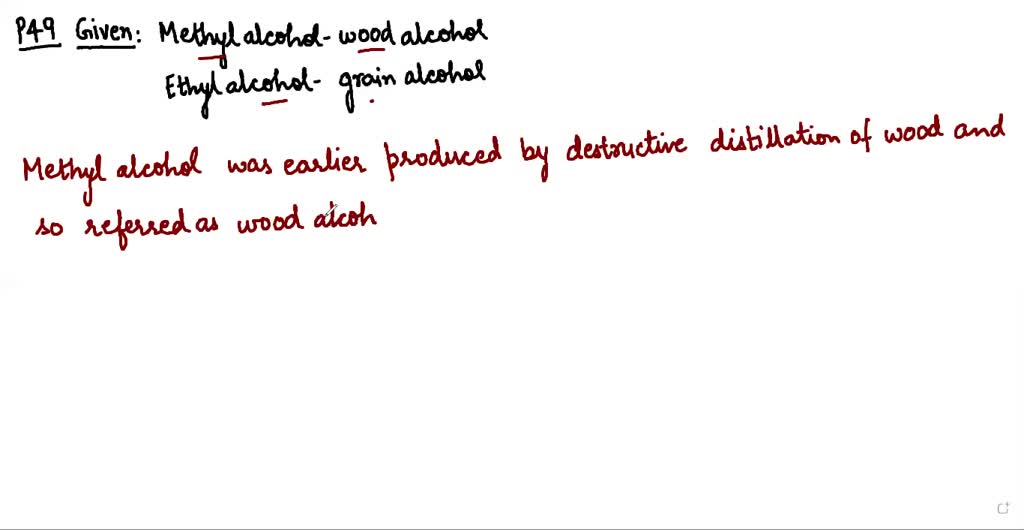 P49 Given: Methyl alcohol - wood alcohol
Ethyl alcohol - grain alcohol
Methyl alcohol was earlier produced by destructive distillation of wood and
so referred as wood alcoh